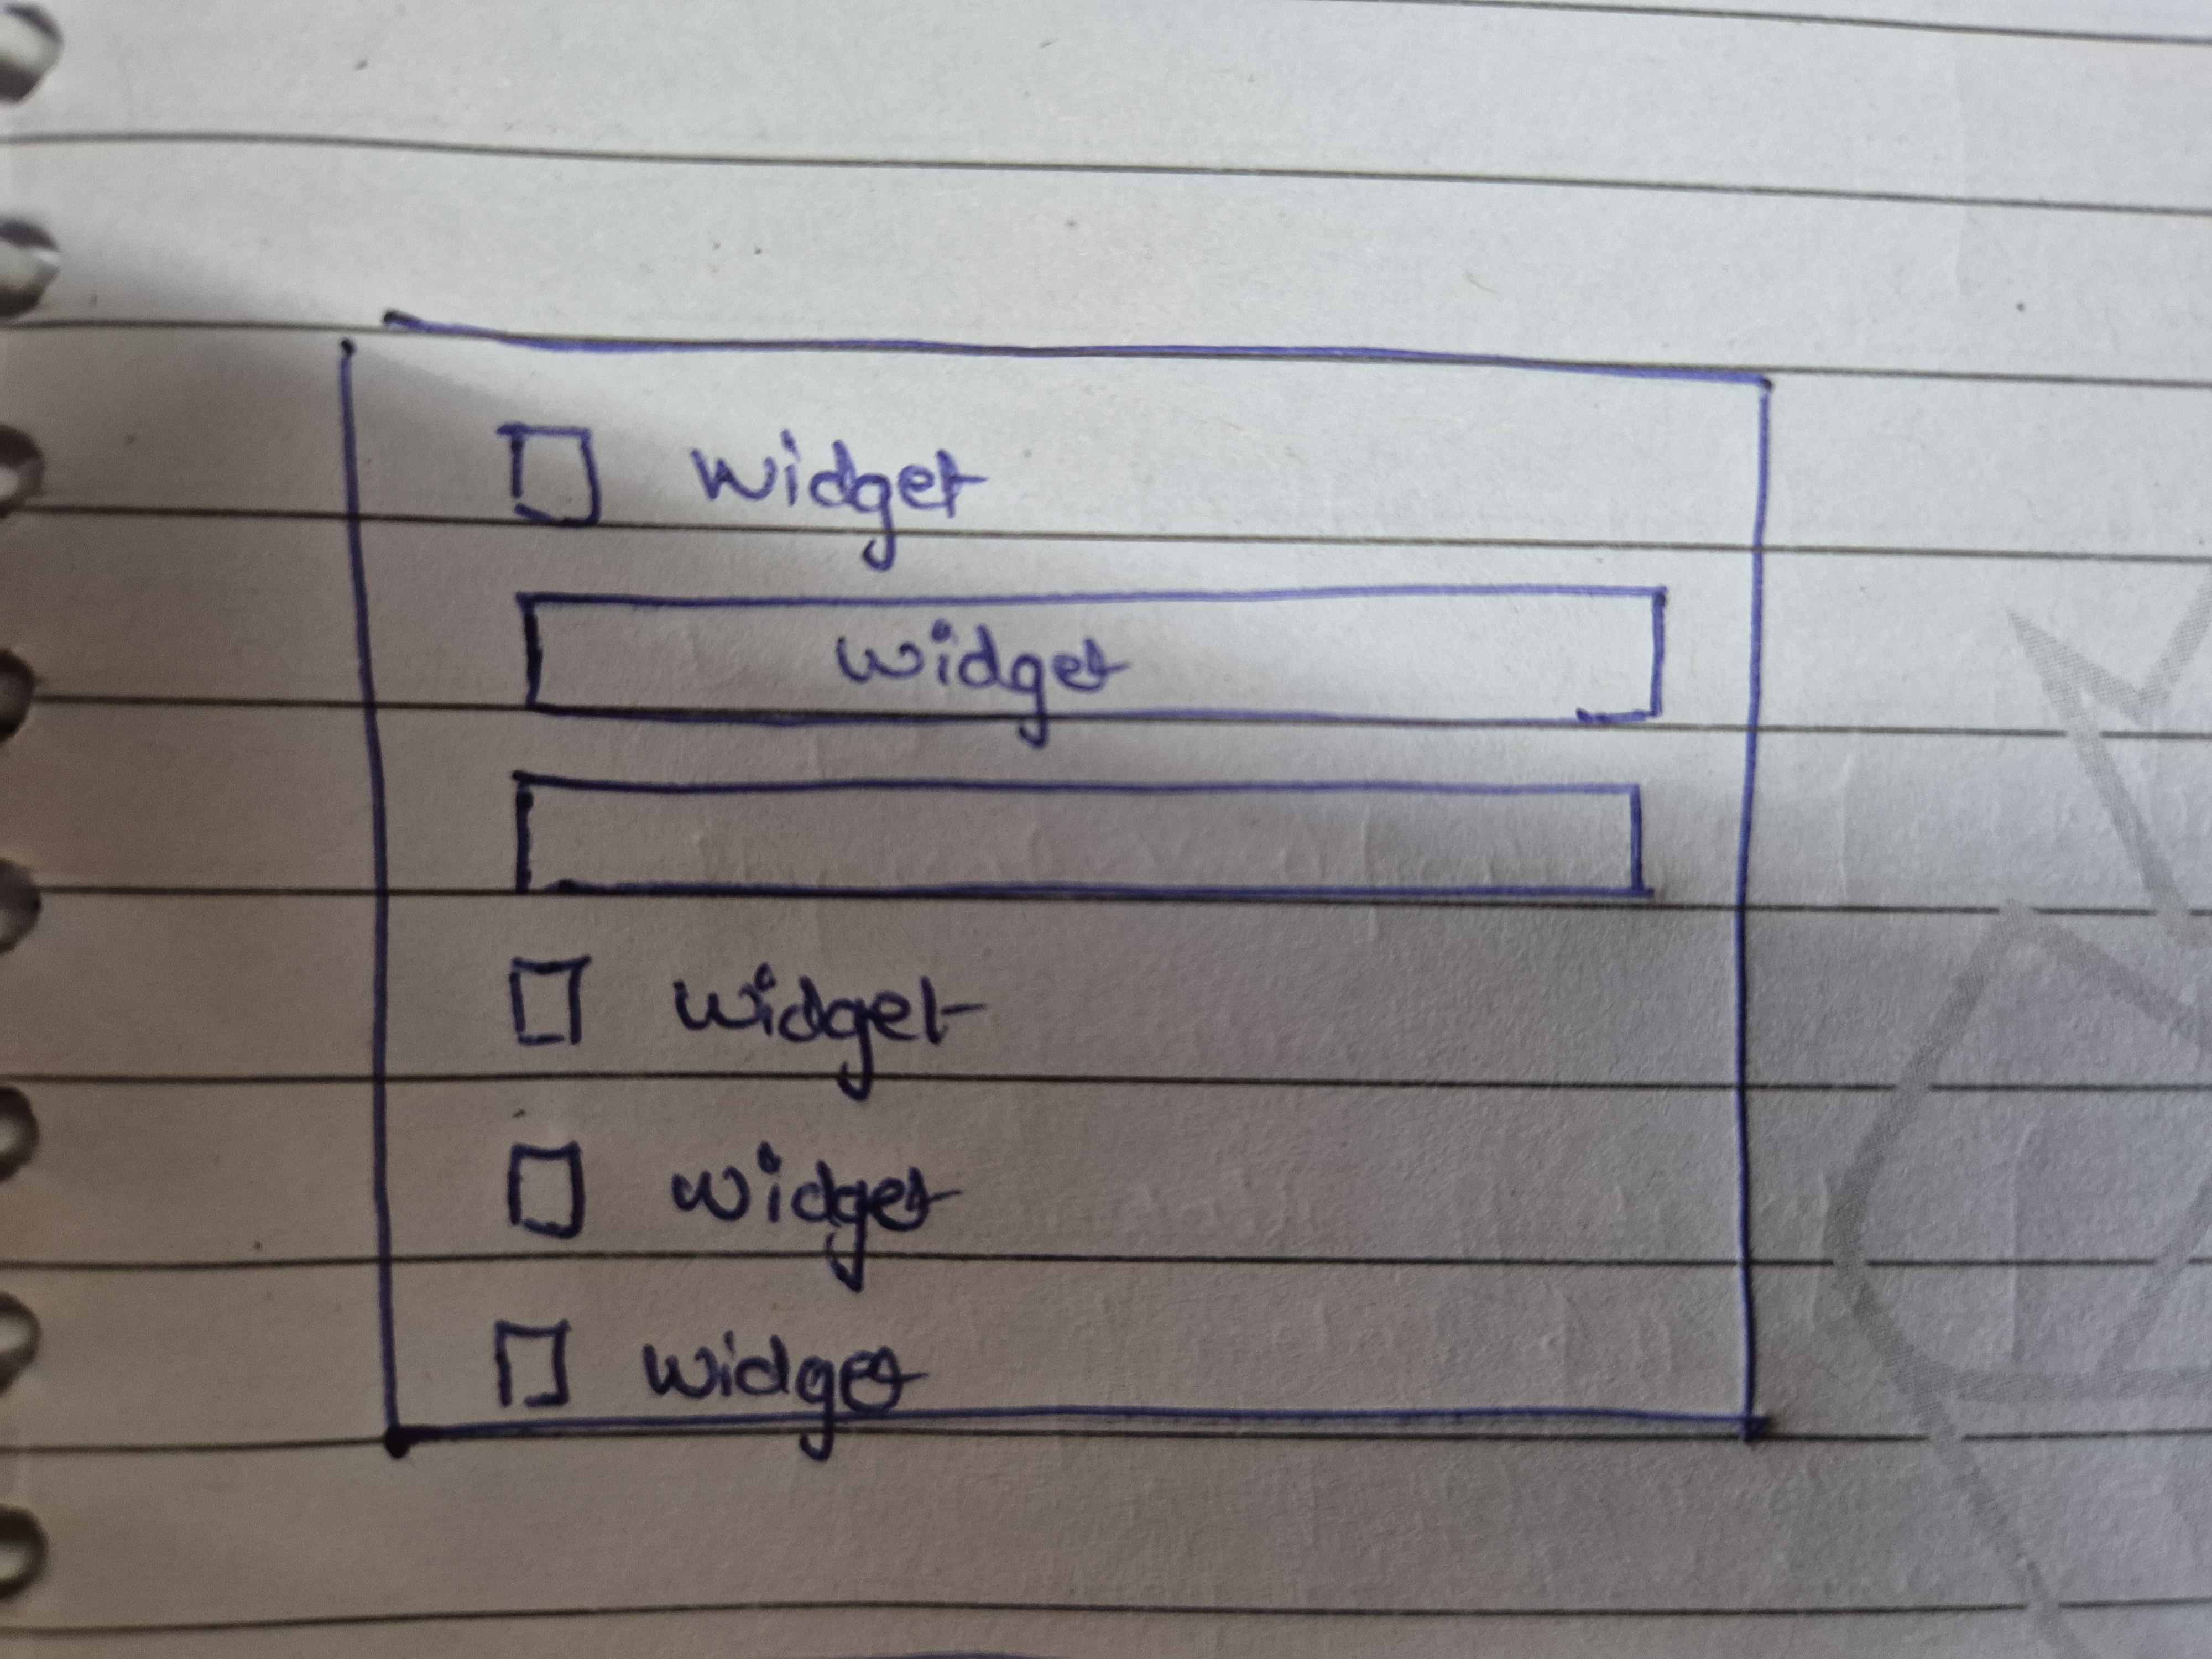 widget
widget
widget
widget
widget